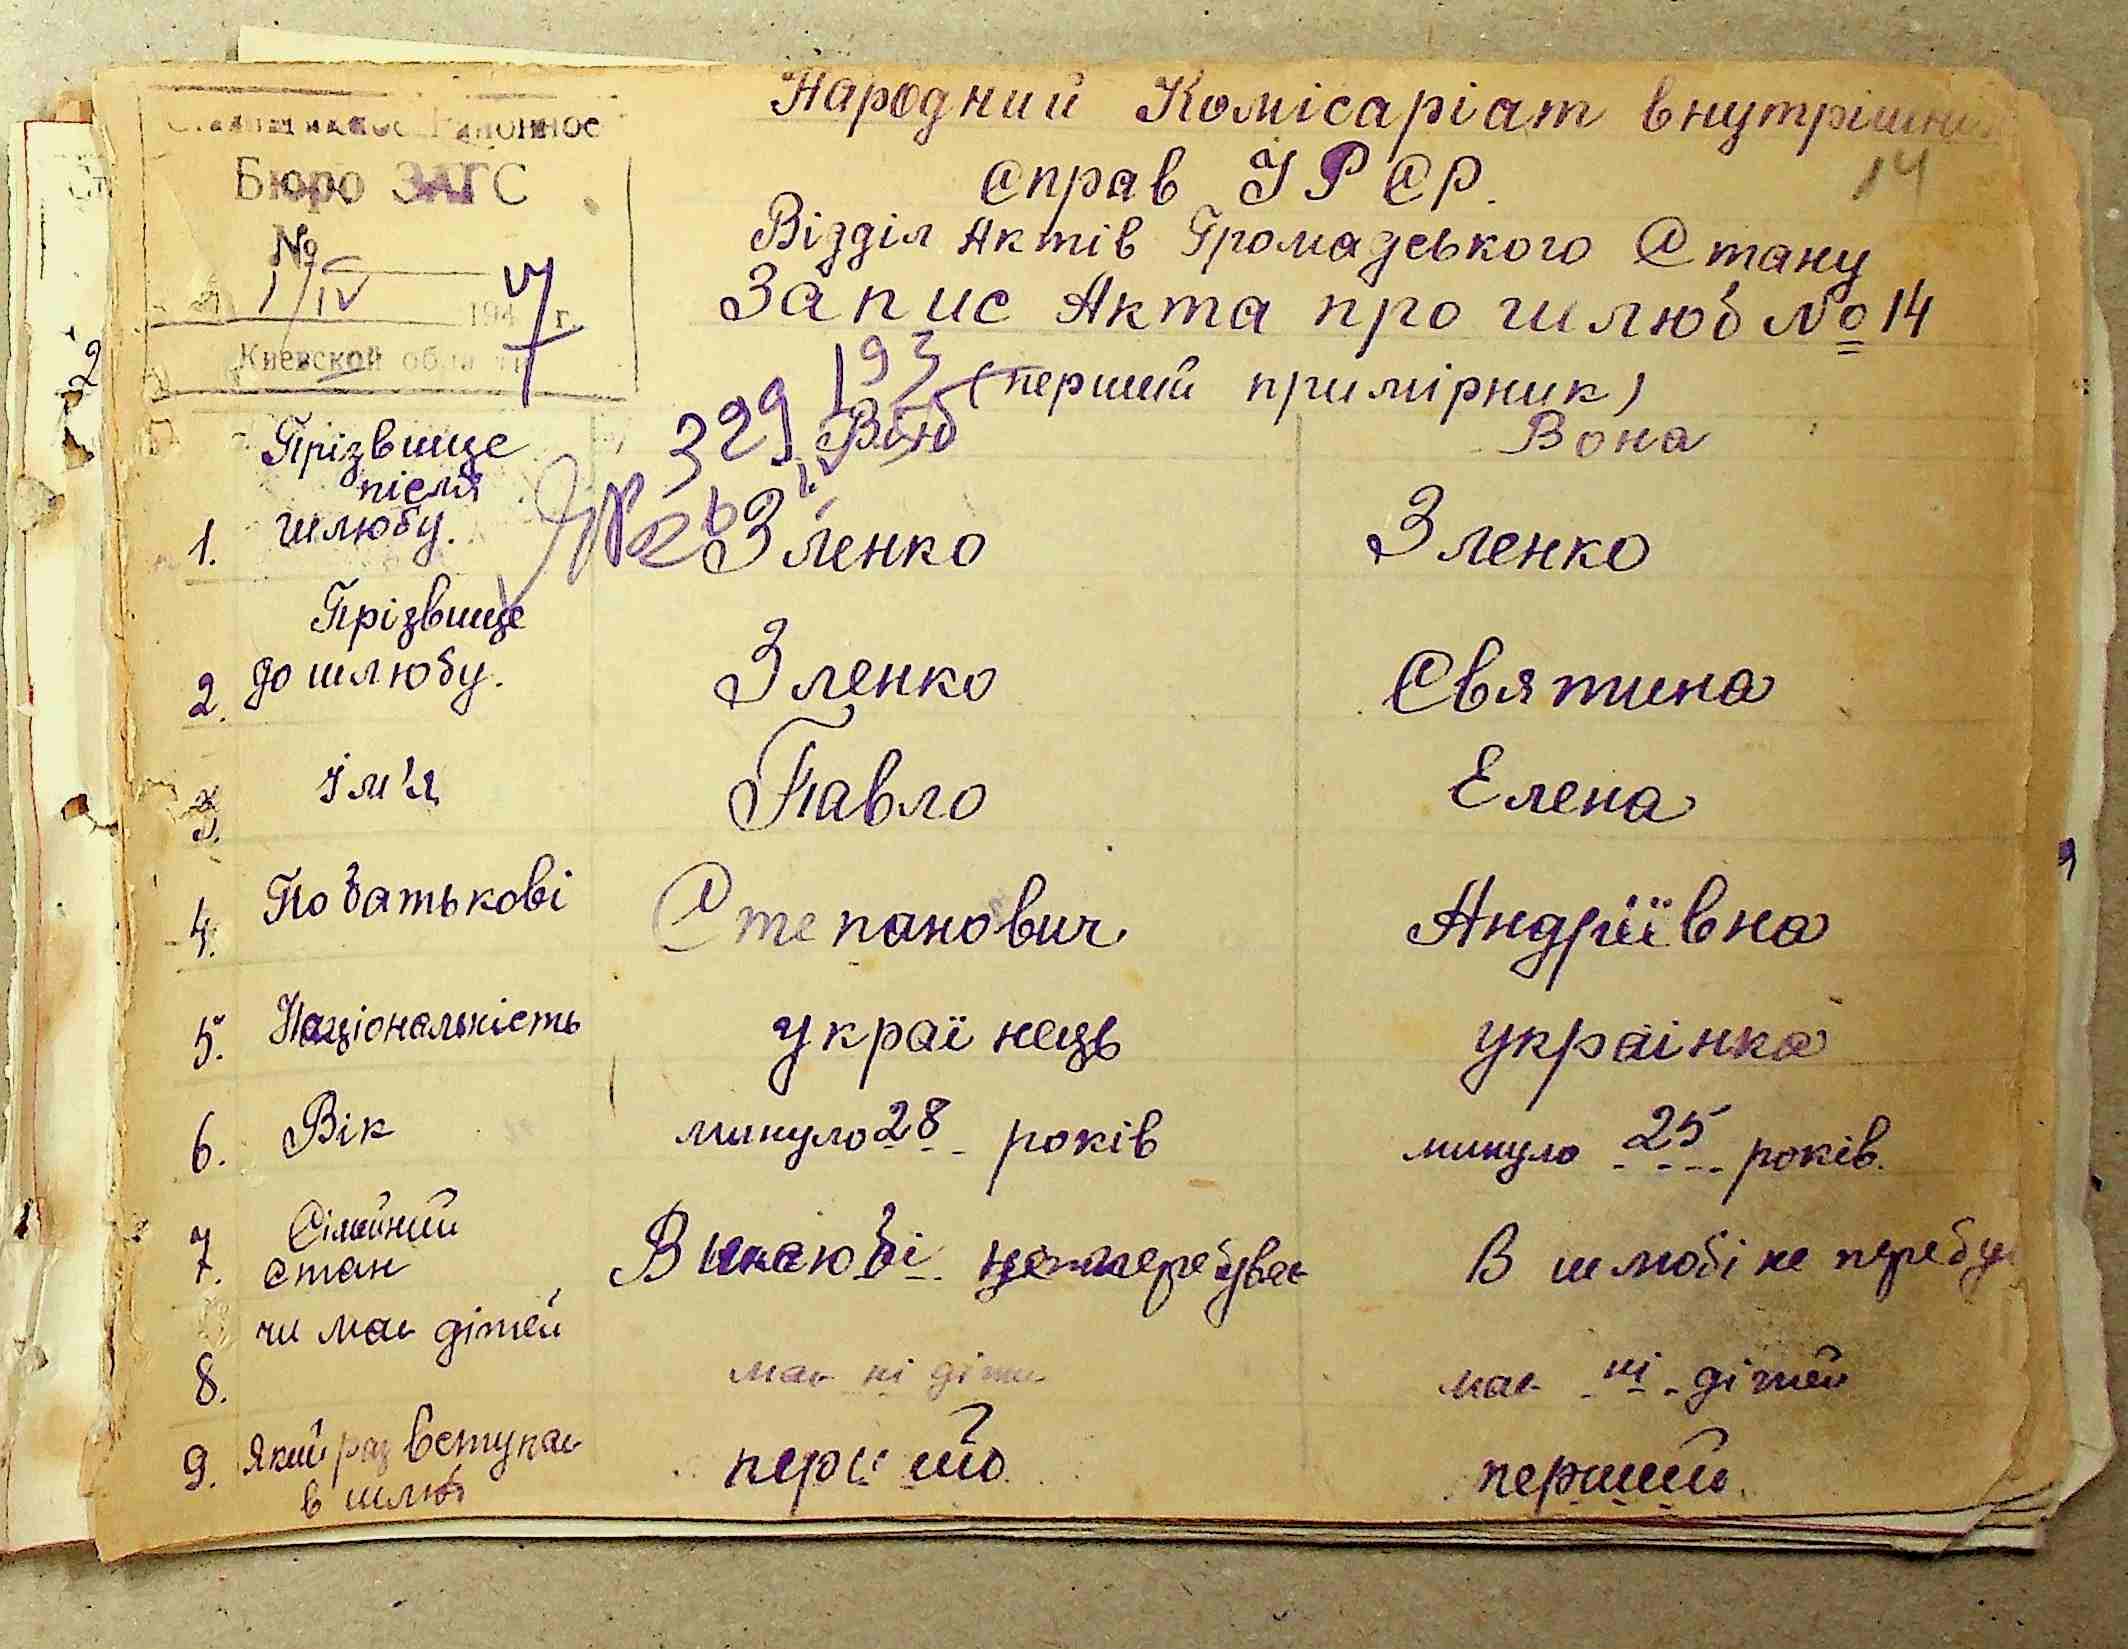 Районное
Бюро ЗАГС
№
1/IV 1947 г.
Киевской области
Народний Комісаріат внутрішніх
Справ УРСР.
14
Відділ Актів Громадського Стану
Запис Акта про шлюб № 14
193
(перший примірник)
329
Він
Вона
1. Прізвище після шлюбу. Зленко Зленко
2. Прізвище до шлюбу. Зленко Святина
3. Ім'я Павло Елена
4. По батькові Степанович Андріївна
5. Національність українець українка
6. Вік минуло 28 років минуло 25 років.
7. Сімейний стан В шлюбі не перебуває В шлюбі не перебу
8. чи має дітей має ні діти має ні дітей
9. Який раз вступає в шлюб перший